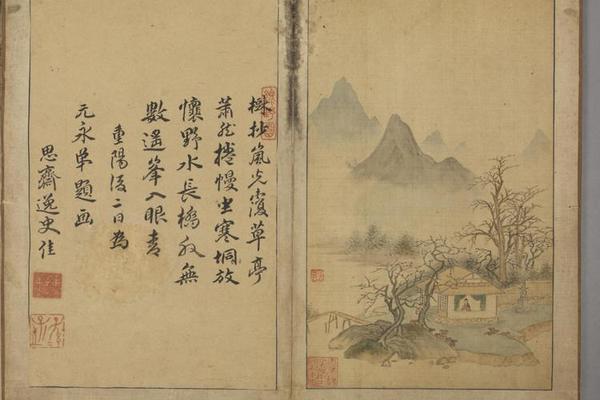 樹杪嵐光覆草亭
蕭然捲幔坐寒坰放
懷野水長橋外無
數遙峯入眼青
重陽後二日為
元永單題画
思齋逸史佳